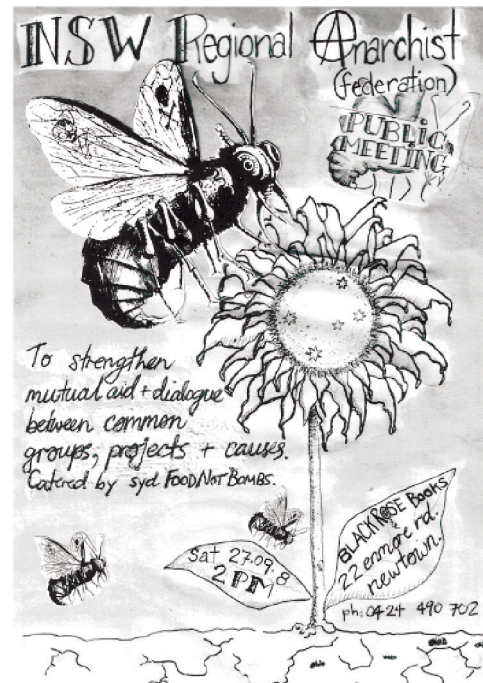 NSW Regional Anarchist
(federation)
PUBLIC
MEETING
To strengthen
mutual aid + dialogue
between common
groups, projects + causes.
Catered by syd FOOD NOT BOMBS.
Sat 27.09.8
2PM
BLACK ROSE Books
22 enmore rd.
newtown.
ph: 0424 490 702